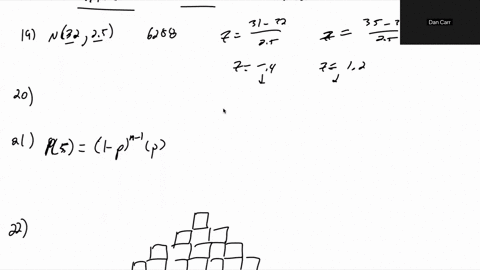 19) N(32, 2.5) 6288 z = 31-32 / 2.5 z = 35-3 / 2.5
z = -.4 z = 1.2
20)
21) P(5) = (1-p)^{n-1} (p)
22)
Dan Carr